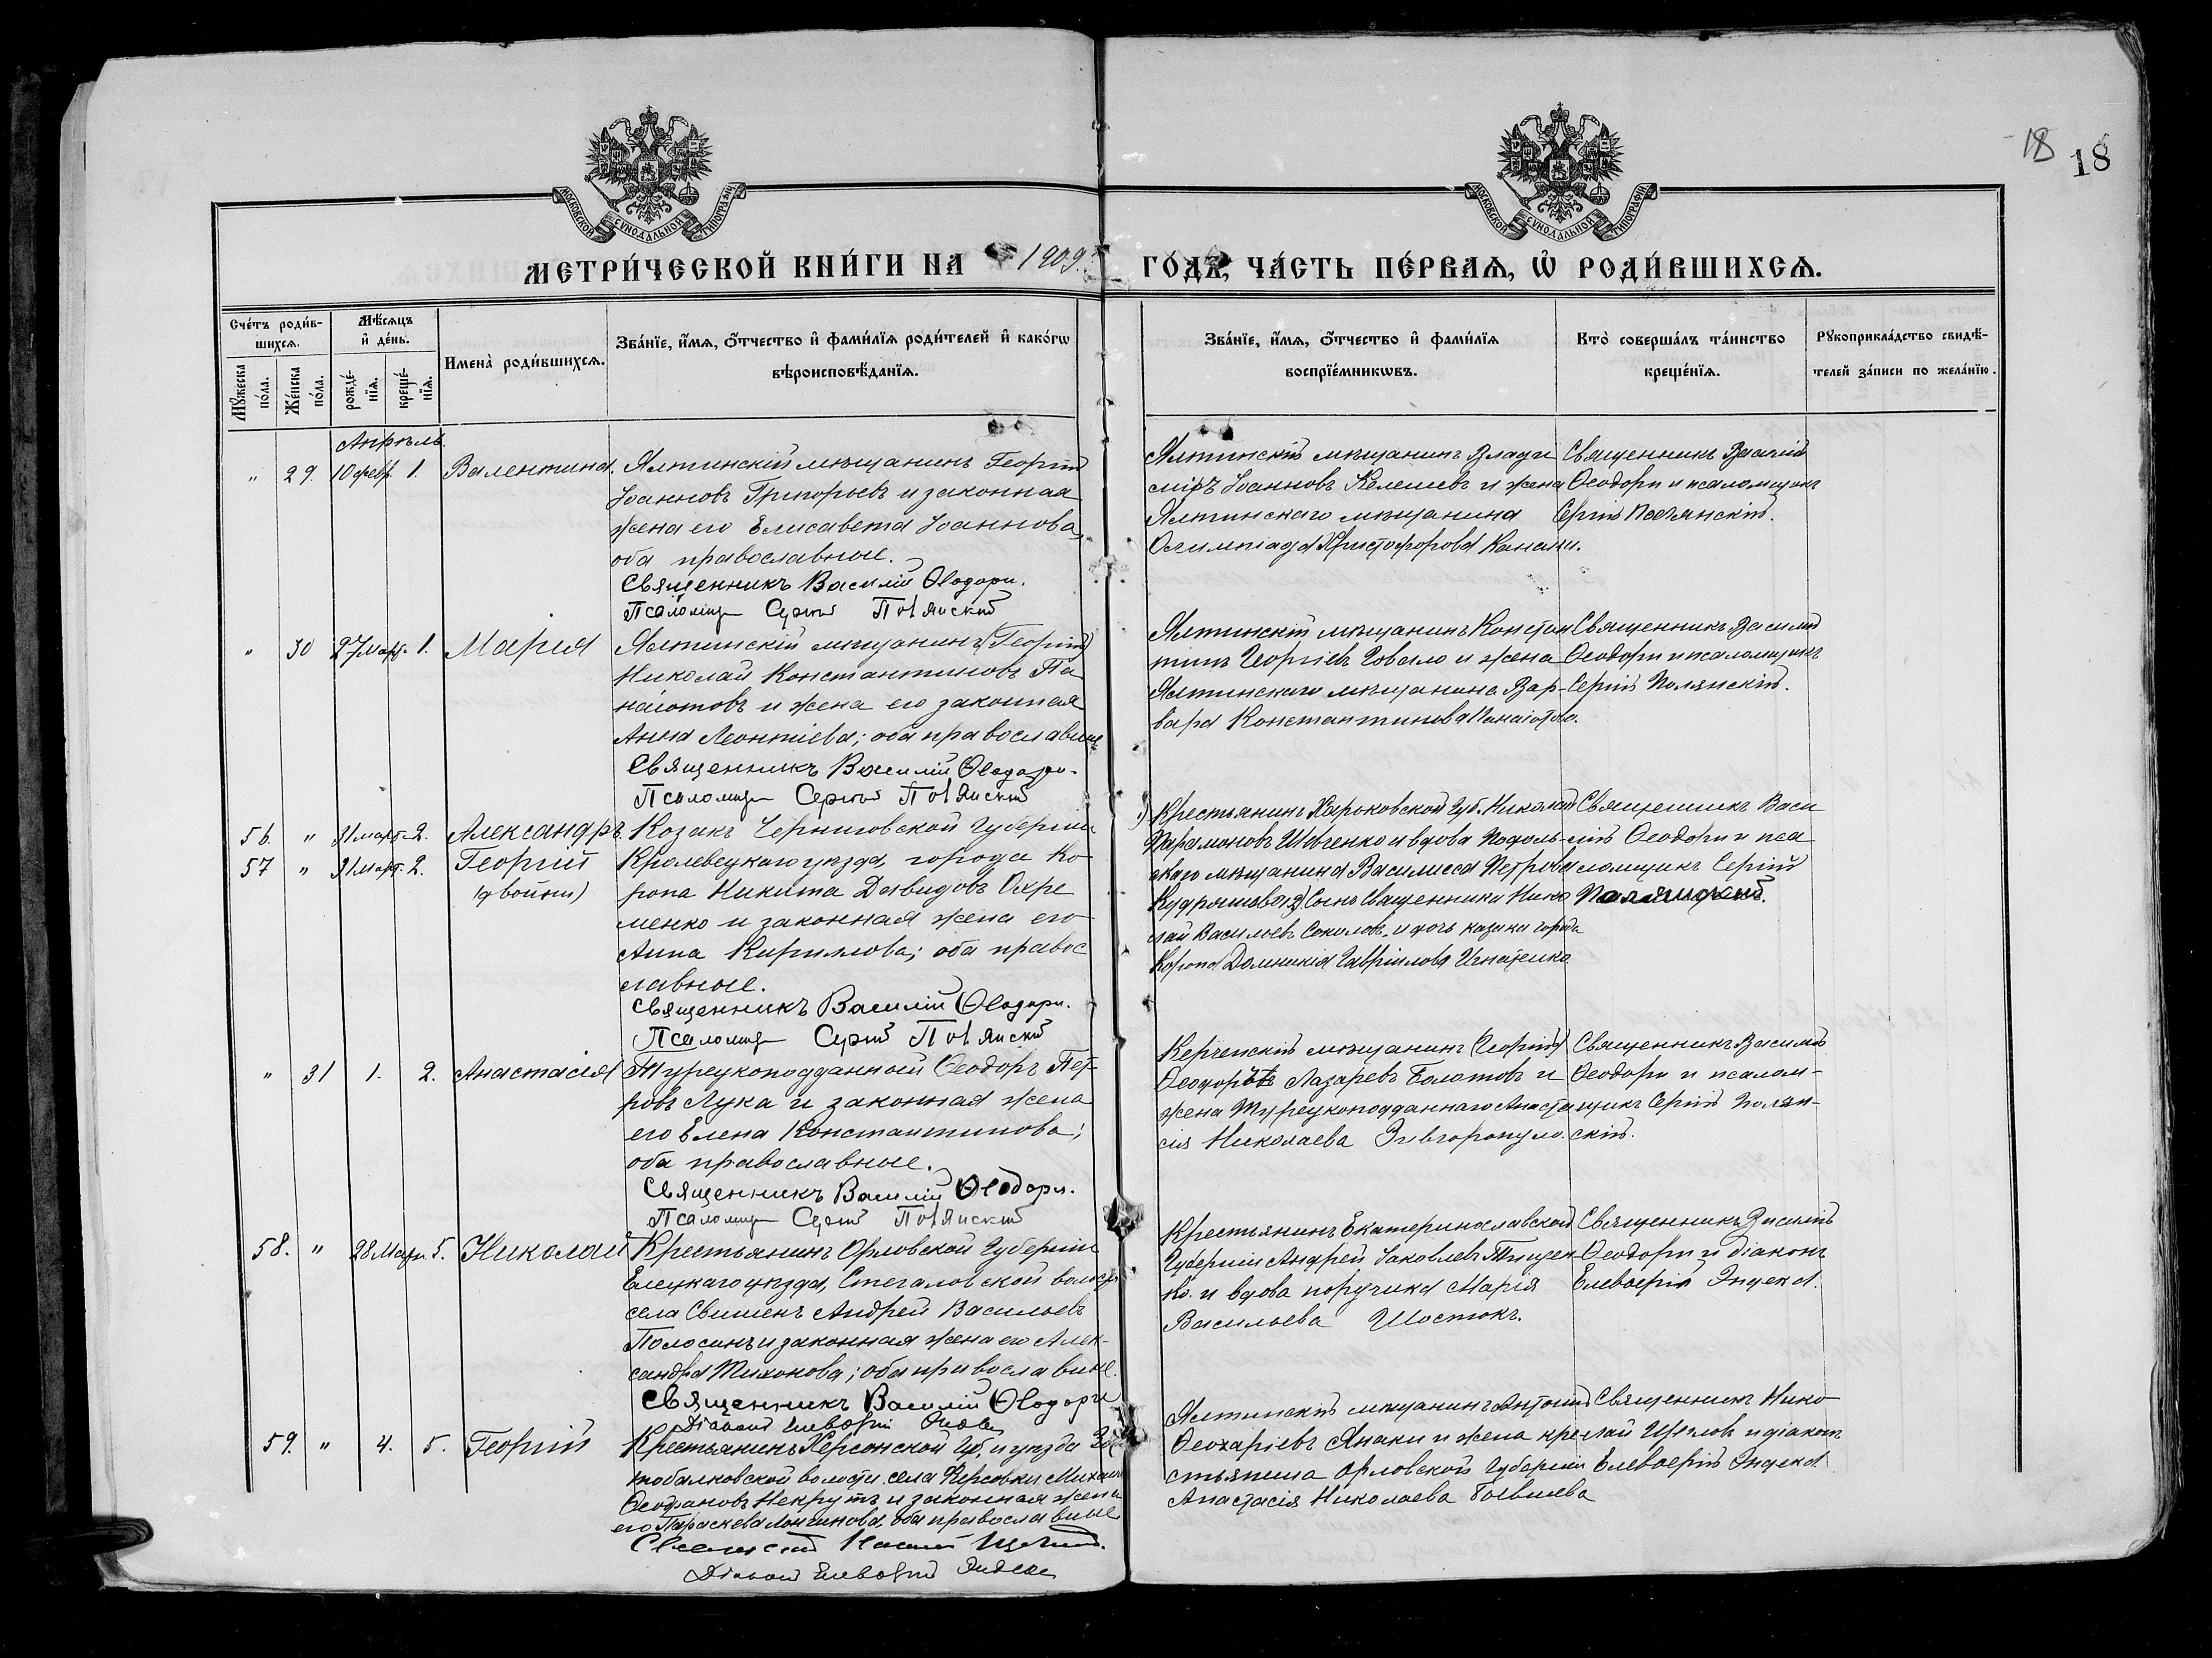 18 18
МОСКОВСКОЙ СѴНОДАЛЬНОЙ ТИПОГРАФІИ
МОСКОВСКОЙ СѴНОДАЛЬНОЙ ТИПОГРАФІИ
МЕТРИ́ЧЕСКОЙ КНИ́ГИ НА 1909 г.
ГО́ДЪ, ЧА́СТЬ ПЕ́РВАѦ, Ѡ҆ РОДИ́ВШИХСѦ.
Сче́тъ роди́в-
шихсѧ.
Мѣ́сѧцъ
и҆ де́нь.
Мꙋ́жеска
по́ла.
Же́нска
по́ла.
рожде́-
нїѧ.
креще́-
нїѧ.
Имена̀ роди́вшихсѧ.
Зва́нїе, и҆́мѧ, ѻ҆́тчество и҆ фами́лїѧ роди́телей и҆ како́гѡ
вѣроисповѣ́данїѧ.
Зва́нїе, и҆́мѧ, ѻ҆́тчество и҆ фами́лїѧ
воспрїе́мникѡвъ.
Кто̀ соверша́лъ та́инство
креще́нїѧ.
Рꙋкоприкла́дство свидѣ́-
телей за́писи по жела́нїю.
Апрѣль.
" 29. 10 февр. 1. Валентина.
Ялтинскій мѣщанинъ Георгій
Іоанновъ Григорьевъ и законная
жена его Елисавета Іоаннова,
оба православные.
Священникъ Василій Ѳеодори.
Псаломщ Сергій Полянскій
Ялтинскій мѣщанинъ Влади
міръ Іоанновъ Келешевъ и жена
Ялтинскаго мѣщанина
Олимпіада Христофорова Канаки.
Священникъ Василій
Ѳеодори и псаломщикъ
Сергій Полянскій.
" 30 27 март. 1. Марія
Ялтинскій мѣщанинъ (Георгій)
Николай Константиновъ Па
наіотовъ и жена его законная
Анна Леонтіева; оба православные
Священникъ Василій Ѳеодори.
Псаломщ Сергій Полянскій
Ялтинскій мѣщанинъ Констан
тинъ Георгіевъ и жена
Ялтинскаго мѣщанина Вар-
вара Константинова Панаіотова.
Священникъ Василій
Ѳеодори и псаломщикъ
Сергій Полянскій.
56. " 31 март. 2. Александръ
57 " 31 март. 2. Георгій
(двойни)
Козакъ Черниговской Губерніи
Кролевецкаго уѣзда, города Ко
ропа Никита Давидовъ Охре
менко и законная жена его
Анна Кириллова; оба правос
лавные.
Священникъ Василій Ѳеодори.
Псаломщ Сергій Полянскій
1) Крестьянинъ Харьковской Губ. Николай
Парамоновъ Шевченко и вдова Подоль-
скаго мѣщанина Василисса Петрова
Кудряшова; 2) Сынъ Священника Нико
лай Васильевъ Соколов, и дочь казака города
Коропа Домникія Гавріилова Игнатенко
Священникъ Васи
лій Ѳеодори и пса
ломщикъ Сергій
Полянскій.
" 31 1. 2. Анастасія
Турецкоподданный Ѳеодоръ Пет-
ровъ Лука и законная жена
его Елена Константинова;
оба православные.
Священникъ Василій Ѳеодори.
Псаломщ Сергій Полянскій
Керченскій мѣщанинъ (Георгій)
Ѳеодоръ Лазаревъ Болотовъ и
жена Турецкоподданнаго Анаста
сія Николаева
Священникъ Василій
Ѳеодори и псалом-
щикъ Сергій Полян-
скій.
58. " 28 Март. 5. Николай
Крестьянинъ Орловской Губерніи
Елецкаго уѣзда, Стегаловской волости
села Свишенъ Андрей Васильевъ
Полосинъ и законная жена его Алек-
сандра Тихонова; оба православные.
Священникъ Василій Ѳеодори
Діаконъ Елевѳерій Эндека
Крестьянинъ Екатеринославской
Губерніи Андрей Іаковлевъ Тищен
ко. и вдова поручика Марія
Васильева Шостокъ.
Священникъ Василій
Ѳеодори и діаконъ
Елевѳерій Эндека.
59. " 4. 5. Георгій
Крестьянинъ Херсонской Губ. и уѣзда
волости села Михаилъ
Ѳеофановъ Некрутъ и законная жена
его Параскева Лонгинова, оба православные
Священникъ Николай
Діаконъ Елевѳерій Эндека
Ялтинскій мѣщанинъ Антоній
Ѳеохаріевъ Янаки и жена кре
стьянина Орловской Губерніи
Анастасія Николаева
Священникъ Нико
лай и діаконъ
Елевѳерій Эндека